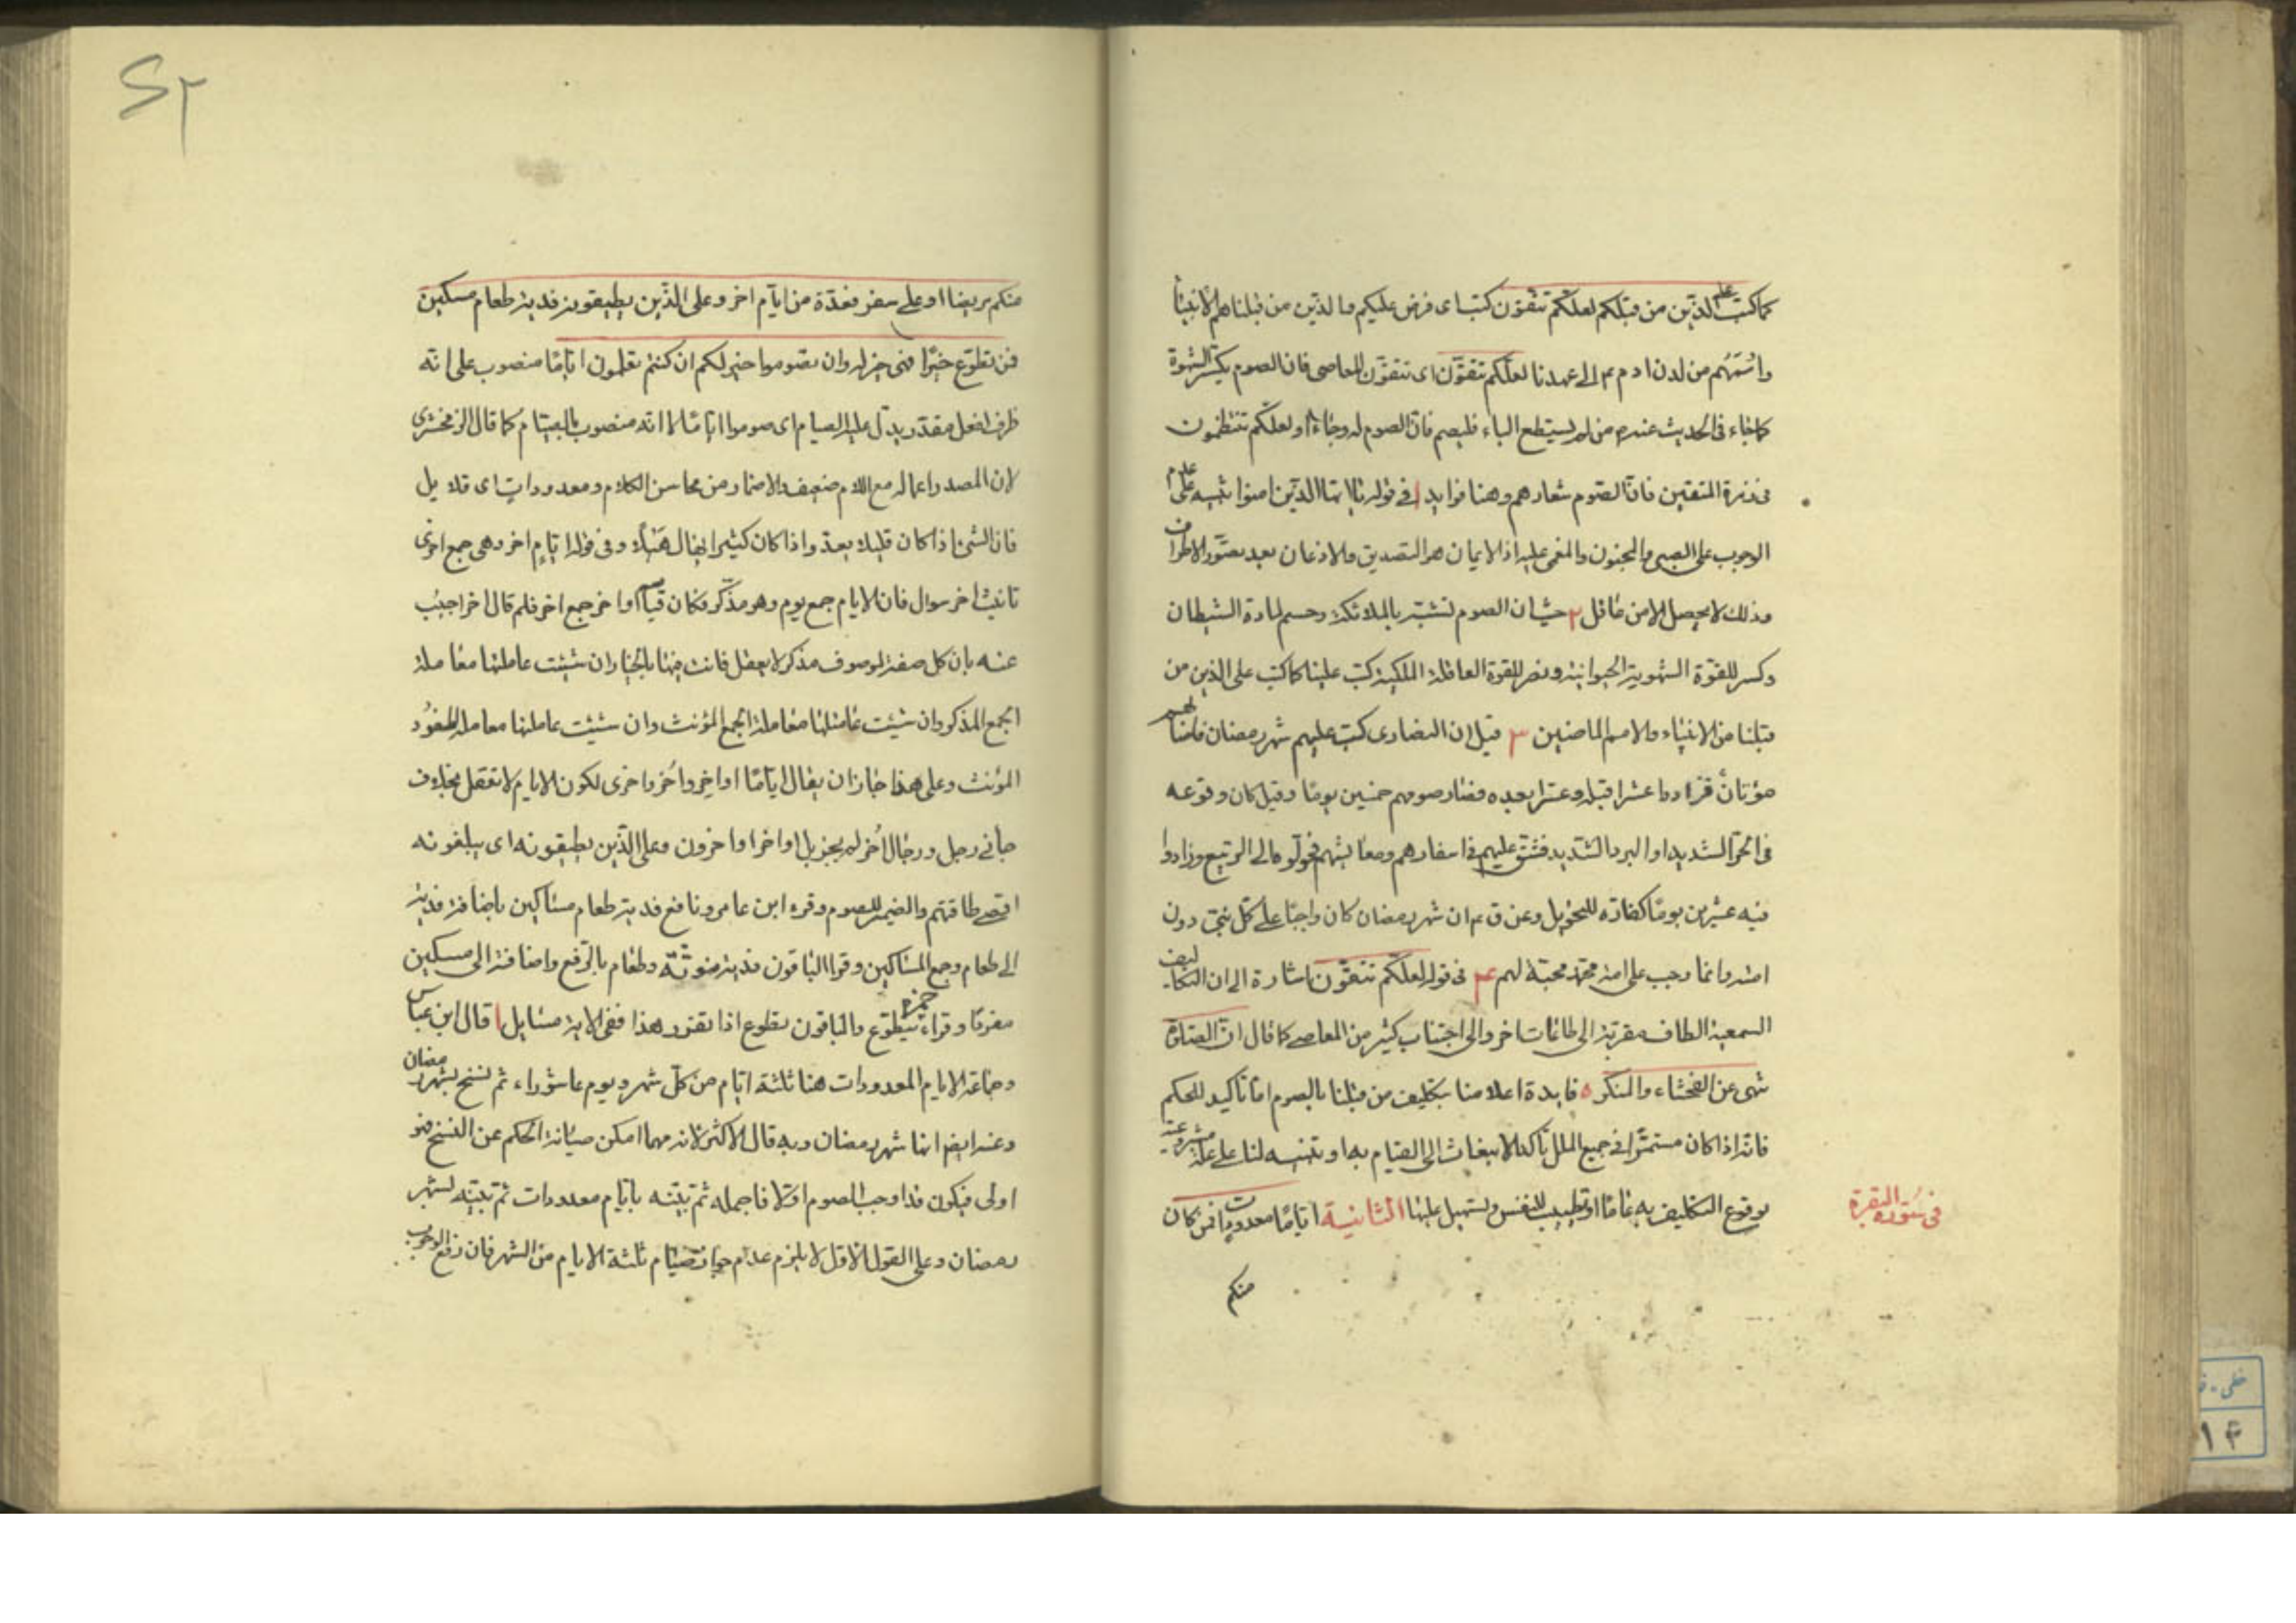 كما كتب على الذين من قبلكم لعلكم تتقون كتب اى فرض عليكم والذين من قبلنا هم الانبياء
واممهم من لدن ادم ع الى عهدنا لعلكم تتقون اى تتقون المعاصى فان الصوم يكسر الشهوة
كما جاء فى الحديث عنه ص من لم يستطع الباء فليصم فان الصوم له وجاء او لعلكم تنتظمون
فى زمرة المتقين فان الصوم شعارهم وهنا فوايد ا فى قوله يا ايها الذين امنوا تنبيه على عدم
الوجوب على الصبى والمجنون والمغمى عليه اذ الايمان هو التصديق والاذعان بعد تصور الاطراف
وذلك لا يحصل الا من عاقل ٢ حيث ان الصوم تشبه بالملائكة وحسم لمادة الشيطان
وكسر للقوة الشهوية الحيوانية ونصر للقوة العاقلة الملكية كتب علينا كما كتب على الذين من
قبلنا من الانبياء والامم الماضين ٣ قيل ان النصارى كتب عليهم شهر رمضان فاصابهم
موتان فزادوا عشرا قبله وعشرا بعده فصار صومهم خمسين يوما وقيل كان وقوعه
فى الحر الشديد او البرد الشديد فشق عليهم فى اسفارهم ومعايشهم فحولوه الى الربيع وزادوا
فيه عشرين يوما كفارة للتحويل وعن ق ع ان شهر رمضان كان واجبا على كل نبى دون
امته وانما وجب على امة محمد محبة لهم ٤ فى قوله لعلكم تتقون اشارة الى ان التكاليف
السمعية الطاف مقربة الى طاعات اخر والى اجتناب كثير من المعاصى كما قال ان الصلوة
تنهى عن الفحشاء والمنكر ٥ فايدة اعلامنا بتكليف من قبلنا بالصوم اما تاكيد للحكم
فانه اذا كان مستمرا فى جميع الملل تاكد الانبعاث الى القيام به او تنبيه لنا على علة مشروعيته
بوقوع التكليف به عاما او تطييب للنفس وتسهيل علينا الثانية اياما معدودات فمن كان
فى سورة البقرة
منكم
٢٢
منكم مريضا او على سفر فعدة من ايام اخر وعلى الذين يطيقونه فدية طعام مسكين
فمن تطوع خيرا فهو خير له وان تصوموا خير لكم ان كنتم تعلمون اياما منصوب على انه
ظرف لفعل مقدر يدل عليه الصيام اى صوموا اياما لا انه منصوب بالصيام كما قال الزمخشرى
لان المصدر اعماله مع اللام ضعيف والاضمار من محاسن الكلام ومعدودات اى قلايل
فان الشئ اذا كان قليلا يعد واذا كان كثيرا يهال هيلا وفى قوله ايام اخر وهى جمع اخرى
تانيث اخر سوال فان الايام جمع يوم وهو مذكر فكان قياسه اواخر جمع اخر فلم قال اخر اجيب
عنه بان كل صفة لموصوف مذكر لا يعقل فانت فيها بالخيار ان شئت عاملتها معاملة
الجمع المذكر وان شئت عاملتها معاملة الجمع المؤنث وان شئت عاملتها معاملة المفرد
المؤنث وعلى هذا جاز ان يقال اياما اواخر واخر واخرى لكون الايام لا تعقل بخلاف
جائنى رجل ورجال اخر لم يجز بل اواخر او اخرون وعلى الذين يطيقونه اى يبلغونه
اقصى طاقتهم والضمير للصوم وقرء ابن عامر ونافع فدية طعام مساكين باضافة فدية
الى طعام وجمع المساكين وقرا الباقون فدية منونة وطعام بالرفع واضافته الى مسكين
مفردا وقراء حمزة يطوع والباقون تطوع اذا تقرر هذا ففى الاية مسايل ا قال ابن عباس
وجماعة الايام المعدودات هنا ثلثة ايام من كل شهر ويوم عاشوراء ثم نسخ بشهر رمضان
وعنه ايضا انها شهر رمضان وبه قال الاكثر لانه مهما امكن صيانة الحكم عن النسخ فهو
اولى فيكون قد اوجب الصوم اولا فاجمله ثم بينه بايام معدودات ثم بينه بشهر
رمضان وعلى القول الاول لا يلزم عدم جواز صيام ثلثة الايام من الشهر فان رفع الوجوب